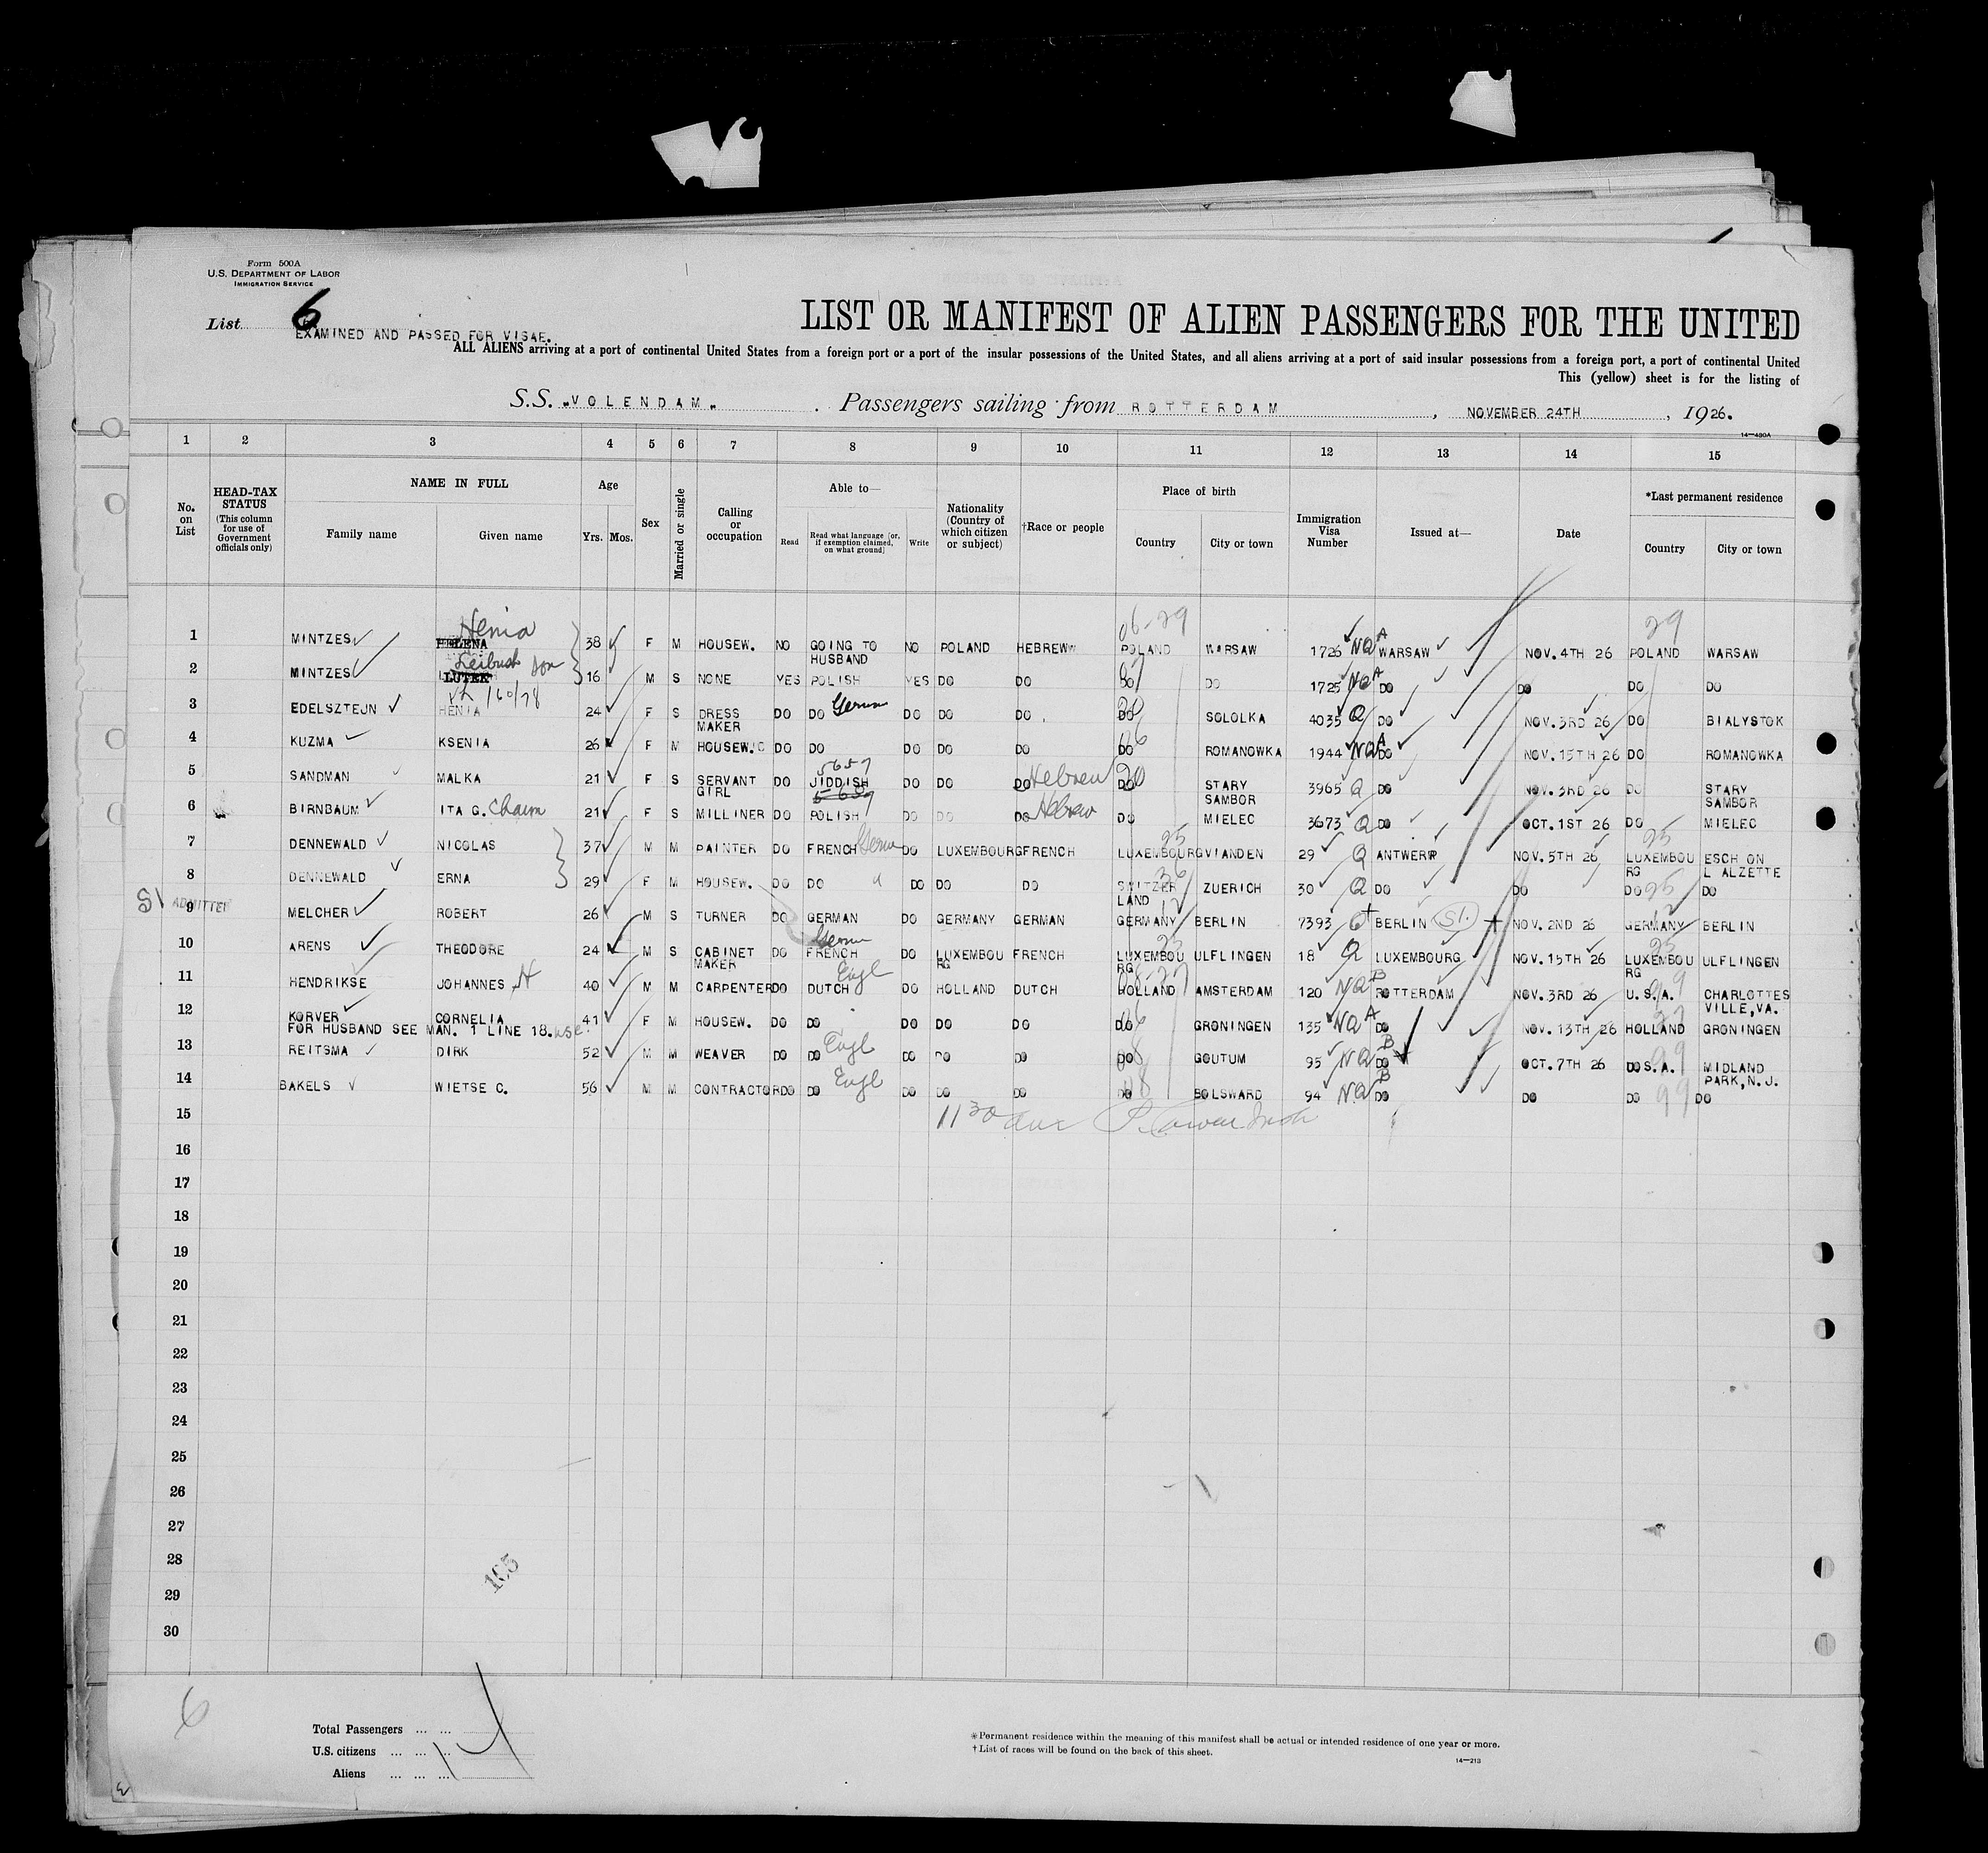 Form 500A
U.S. DEPARTMENT OF LABOR
IMMIGRATION SERVICE
List 6
EXAMINED AND PASSED FOR VISAE.
LIST OR MANIFEST OF ALIEN PASSENGERS FOR THE UNITED
ALL ALIENS arriving at a port of continental United States from a foreign port or a port of the insular possessions of the United States, and all aliens arriving at a port of said insular possessions from a foreign port, a port of continental United
This (yellow) sheet is for the listing of
S.S. "VOLENDAM" . Passengers sailing from ROTTERDAM , NOVEMBER 24TH , 1926.
14—480A
1 2 3 4 5 6 7 8 9 10 11 12 13 14 15
No. on List
HEAD-TAX STATUS (This column for use of Government officials only)
NAME IN FULL
Family name Given name
Age
Yrs. Mos.
Sex
Married or single
Calling or occupation
Able to—
Read Read what language (or, if exemption claimed, on what ground) Write
Nationality (Country of which citizen or subject)
†Race or people
Place of birth
Country City or town
Immigration Visa Number
Issued at—
Date
*Last permanent residence
Country City or town
1 MINTZES HELENA Henia 38 F M HOUSEW. NO GOING TO HUSBAND NO POLAND HEBREW 06-29 POLAND WARSAW 1726 NQ A WARSAW NOV. 4TH 26 29 POLAND WARSAW
2 MINTZES LUTEK Leibush Son 16 M S NONE YES POLISH YES DO DO DO DO 1725 NQ A DO DO DO DO
3 EDELSZTEJN HENIA 160/78 24 F S DRESS MAKER DO DO German DO DO DO DO SOLOLKA 4035 Q DO NOV. 3RD 26 DO BIALYSTOK
4 KUZMA KSENIA 26 F M HOUSEW. DO DO DO DO DO DO ROMANOWKA 1944 NQ A DO NOV. 15TH 26 DO ROMANOWKA
5 SANDMAN MALKA 21 F S SERVANT GIRL DO JIDDISH DO DO DO Hebrew DO STARY SAMBOR 3965 Q DO NOV. 3RD 26 DO STARY SAMBOR
6 BIRNBAUM ITA G. Chaim 21 F S MILLINER DO POLISH DO DO DO Hebrew DO MIELEC 3673 Q DO OCT. 1ST 26 DO MIELEC
7 DENNEWALD NICOLAS 37 M M PAINTER DO FRENCH German DO LUXEMBOURG FRENCH 25 LUXEMBOURG VIANDEN 29 Q ANTWERP NOV. 5TH 26 25 LUXEMBOURG ESCH ON L ALZETTE
8 DENNEWALD ERNA 29 F M HOUSEW. DO DO DO DO DO SWITZERLAND ZUERICH 30 Q DO DO DO 25 DO
SI ADMITTED
9 MELCHER ROBERT 26 M S TURNER DO GERMAN DO GERMANY GERMAN GERMANY BERLIN 7393 BERLIN SI. NOV. 2ND 26 GERMANY BERLIN
10 ARENS THEODORE 24 M S CABINET MAKER DO FRENCH German DO LUXEMBOURG FRENCH 25 LUXEMBOURG ULFLINGEN 18 Q LUXEMBOURG NOV. 15TH 26 25 LUXEMBOURG ULFLINGEN
11 HENDRIKSE JOHANNES H 40 M M CARPENTER DO DUTCH Engl DO HOLLAND DUTCH HOLLAND AMSTERDAM 120 NQ B ROTTERDAM NOV. 3RD 26 U.S.A. 99 CHARLOTTESVILLE, VA.
12 KORVER CORNELIA 41 F M HOUSEW. DO DO DO DO DO DO GRONINGEN 135 NQ A DO NOV. 13TH 26 HOLLAND GRONINGEN
FOR HUSBAND SEE MAN. 1 LINE 18.
13 REITSMA DIRK 52 M M WEAVER DO DO Engl DO DO DO DO GOUTUM 95 NQ B DO OCT. 7TH 26 U.S.A. 99 MIDLAND PARK, N.J.
14 BAKELS WIETSE C. 56 M M CONTRACTOR DO DO Engl DO DO DO DO BOLSWARD 94 NQ B DO DO DO 99 DO
15 1130
16
17
18
19
20
21
22
23
24
25
26
27
28
29
30
165
6
Total Passengers ... ...
U.S. citizens ... ... ...
Aliens ... ... ...
*Permanent residence within the meaning of this manifest shall be actual or intended residence of one year or more.
†List of races will be found on the back of this sheet.
14—213